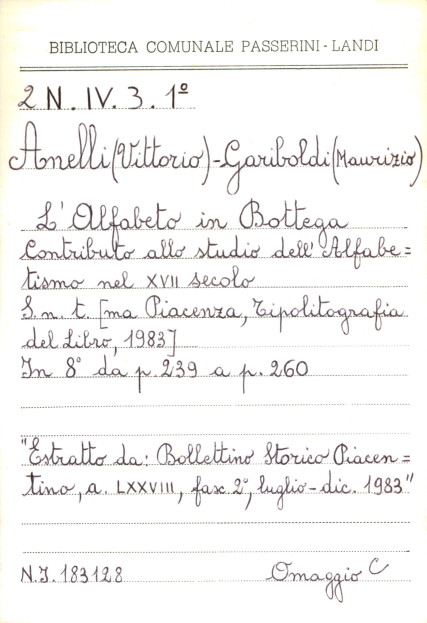 BIBLIOTECA COMUNALE PASSERINI - LANDI
2 N. IV. 3. 1º
Anelli (Vittorio) - Gariboldi (Maurizio)
L'Alfabeto in Bottega
Contributo allo studio dell'Alfabe=
tismo nel XVII secolo
S. n. t. [ma Piacenza, Tipolitografia
del Libro, 1983]
In 8º da p. 239 a p. 260
"Estratto da: Bollettino Storico Piacen=
tino, a. LXXVIII, fasc. 2º, luglio - dic. 1983"
N.I. 183128 Omaggio C